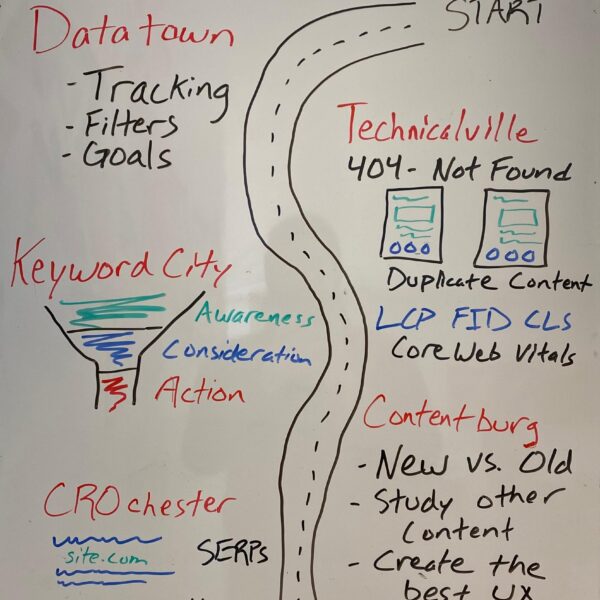 START
Datatown
- Tracking
- Filters
- Goals
Technicalville
404 - Not Found
Duplicate Content
LCP FID CLS
Core Web Vitals
Keyword City
Awareness
Consideration
Action
Contentburg
- New vs. Old
- Study other
Content
- Create the
best UX
CROchester
site.com
SERPs